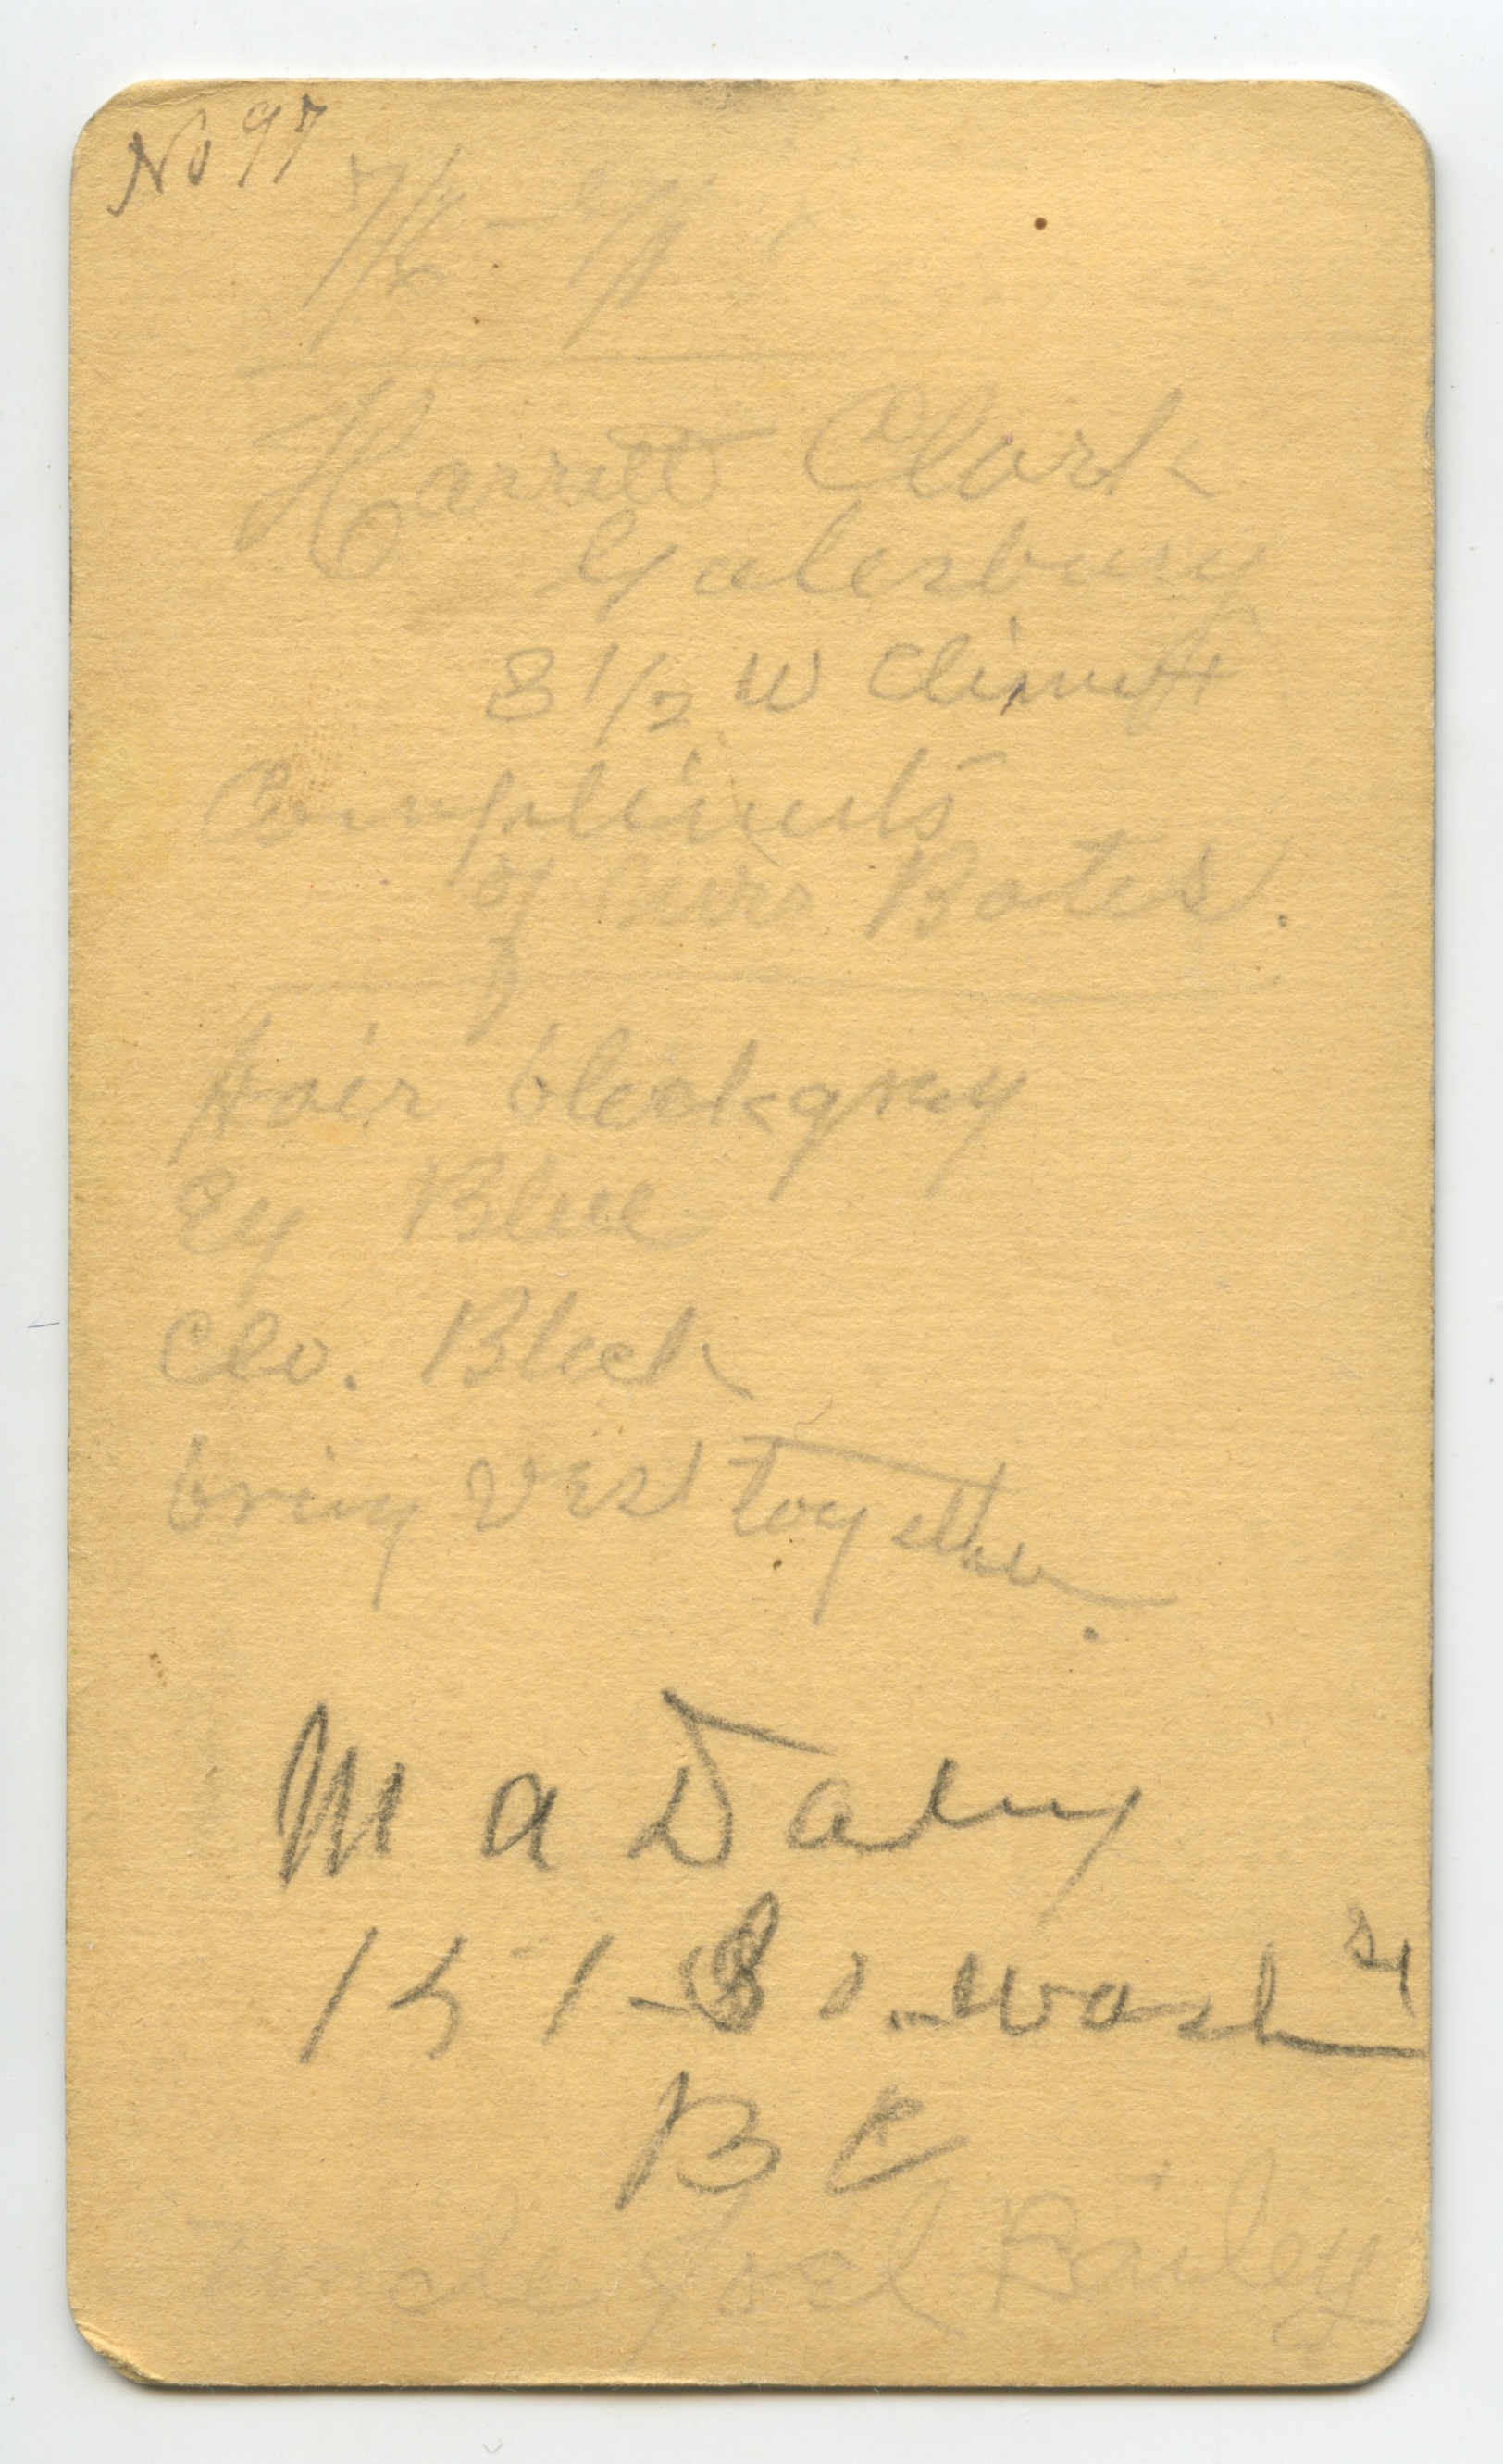 No 97
Harriett Clark
Galesburg
8 1/2 W
Compliments
of Bates.
Hair bleck gray
Ey Blue
Clo. Bleck
bring vest together.
M a Daley
151 So. Wash St
B C
Uncle Joel Bailey